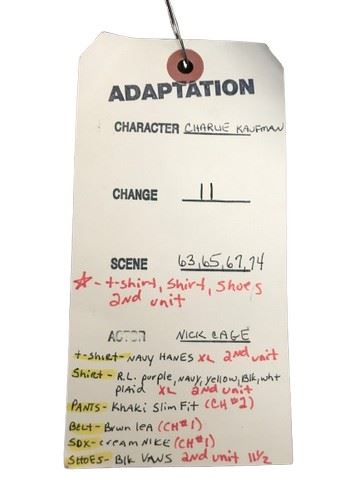 ADAPTATION
CHARACTER CHARLIE KAUFMAN
CHANGE 11
SCENE 63,65,67,74
☆ - t-shirt, shirt, shoes
2nd unit
ACTOR NICK CAGE
t-shirt - NAVY HANES XL 2nd unit
Shirt - R.L. purple, navy, yellow, Blk, wht
plaid XL 2nd unit
PANTS - Khaki Slim Fit (CH#2)
BELT - Brwn lea (CH#1)
SOX - cream NIKE (CH#1)
SHOES - Blk VANS 2nd unit 11½